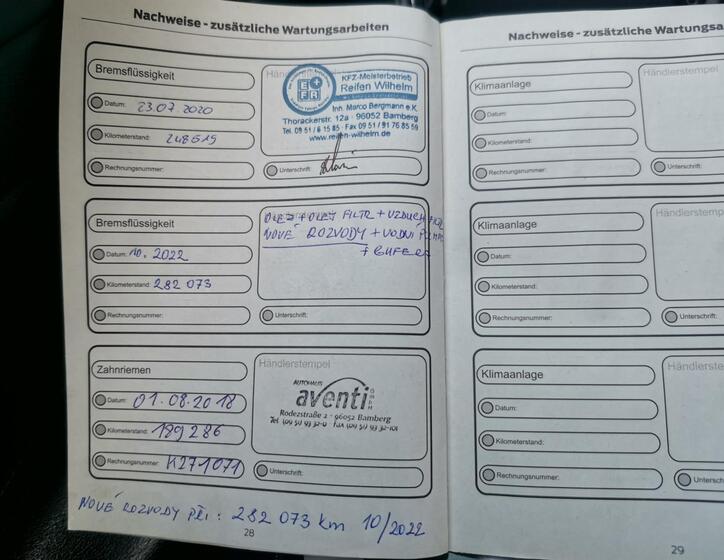 Nachweise - zusätzliche Wartungsarbeiten
Bremsflüssigkeit
Datum: 23.07.2020
Kilometerstand: 248519
Rechnungsnummer:
KFZ-Meisterbetrieb
Reifen Wilhelm
Inh. Marco Bergmann e.K.
Thorackerstr. 12a · 96052 Bamberg
Tel. 09 51/6 15 85 · Fax 09 51/91 76 85 59
www.reifen-wilhelm.de
Unterschrift:
Bremsflüssigkeit
Datum: 10. 2022
Kilometerstand: 282 073
Rechnungsnummer:
OLEJ + OLEJ FILTR + VZDUCH FILTR
NOVÉ ROZVODY + VODNÍ
Unterschrift:
Zahnriemen
Datum: 01.08.2018
Kilometerstand: 189 286
Rechnungsnummer: K271071
Händlerstempel
AUTOHAUS
aventi
GmbH
Rodezstraße 2 - 96052 Bamberg
Tel (09 51) 93 32-0 · FAX (09 51) 93 32-101
Unterschrift:
NOVÉ ROZVODY PŘI: 282 073 km 10/2022
28
Nachweise - zusätzliche Wartungsa
Klimaanlage
Datum:
Kilometerstand:
Rechnungsnummer:
Händlerstempel
Unterschrift:
Klimaanlage
Datum:
Kilometerstand:
Rechnungsnummer:
Händlerstemp
Unterschrift:
Klimaanlage
Datum:
Kilometerstand:
Rechnungsnummer:
Händlerste
Unterschrif
29